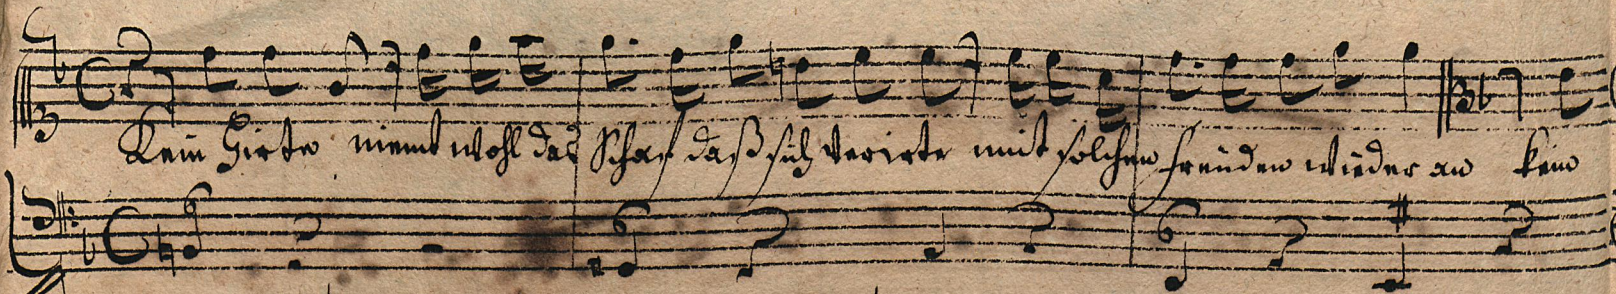 Kein Hirte niemt wohl das Schaf daß sich verirte mit solchen freuden wieder an kein